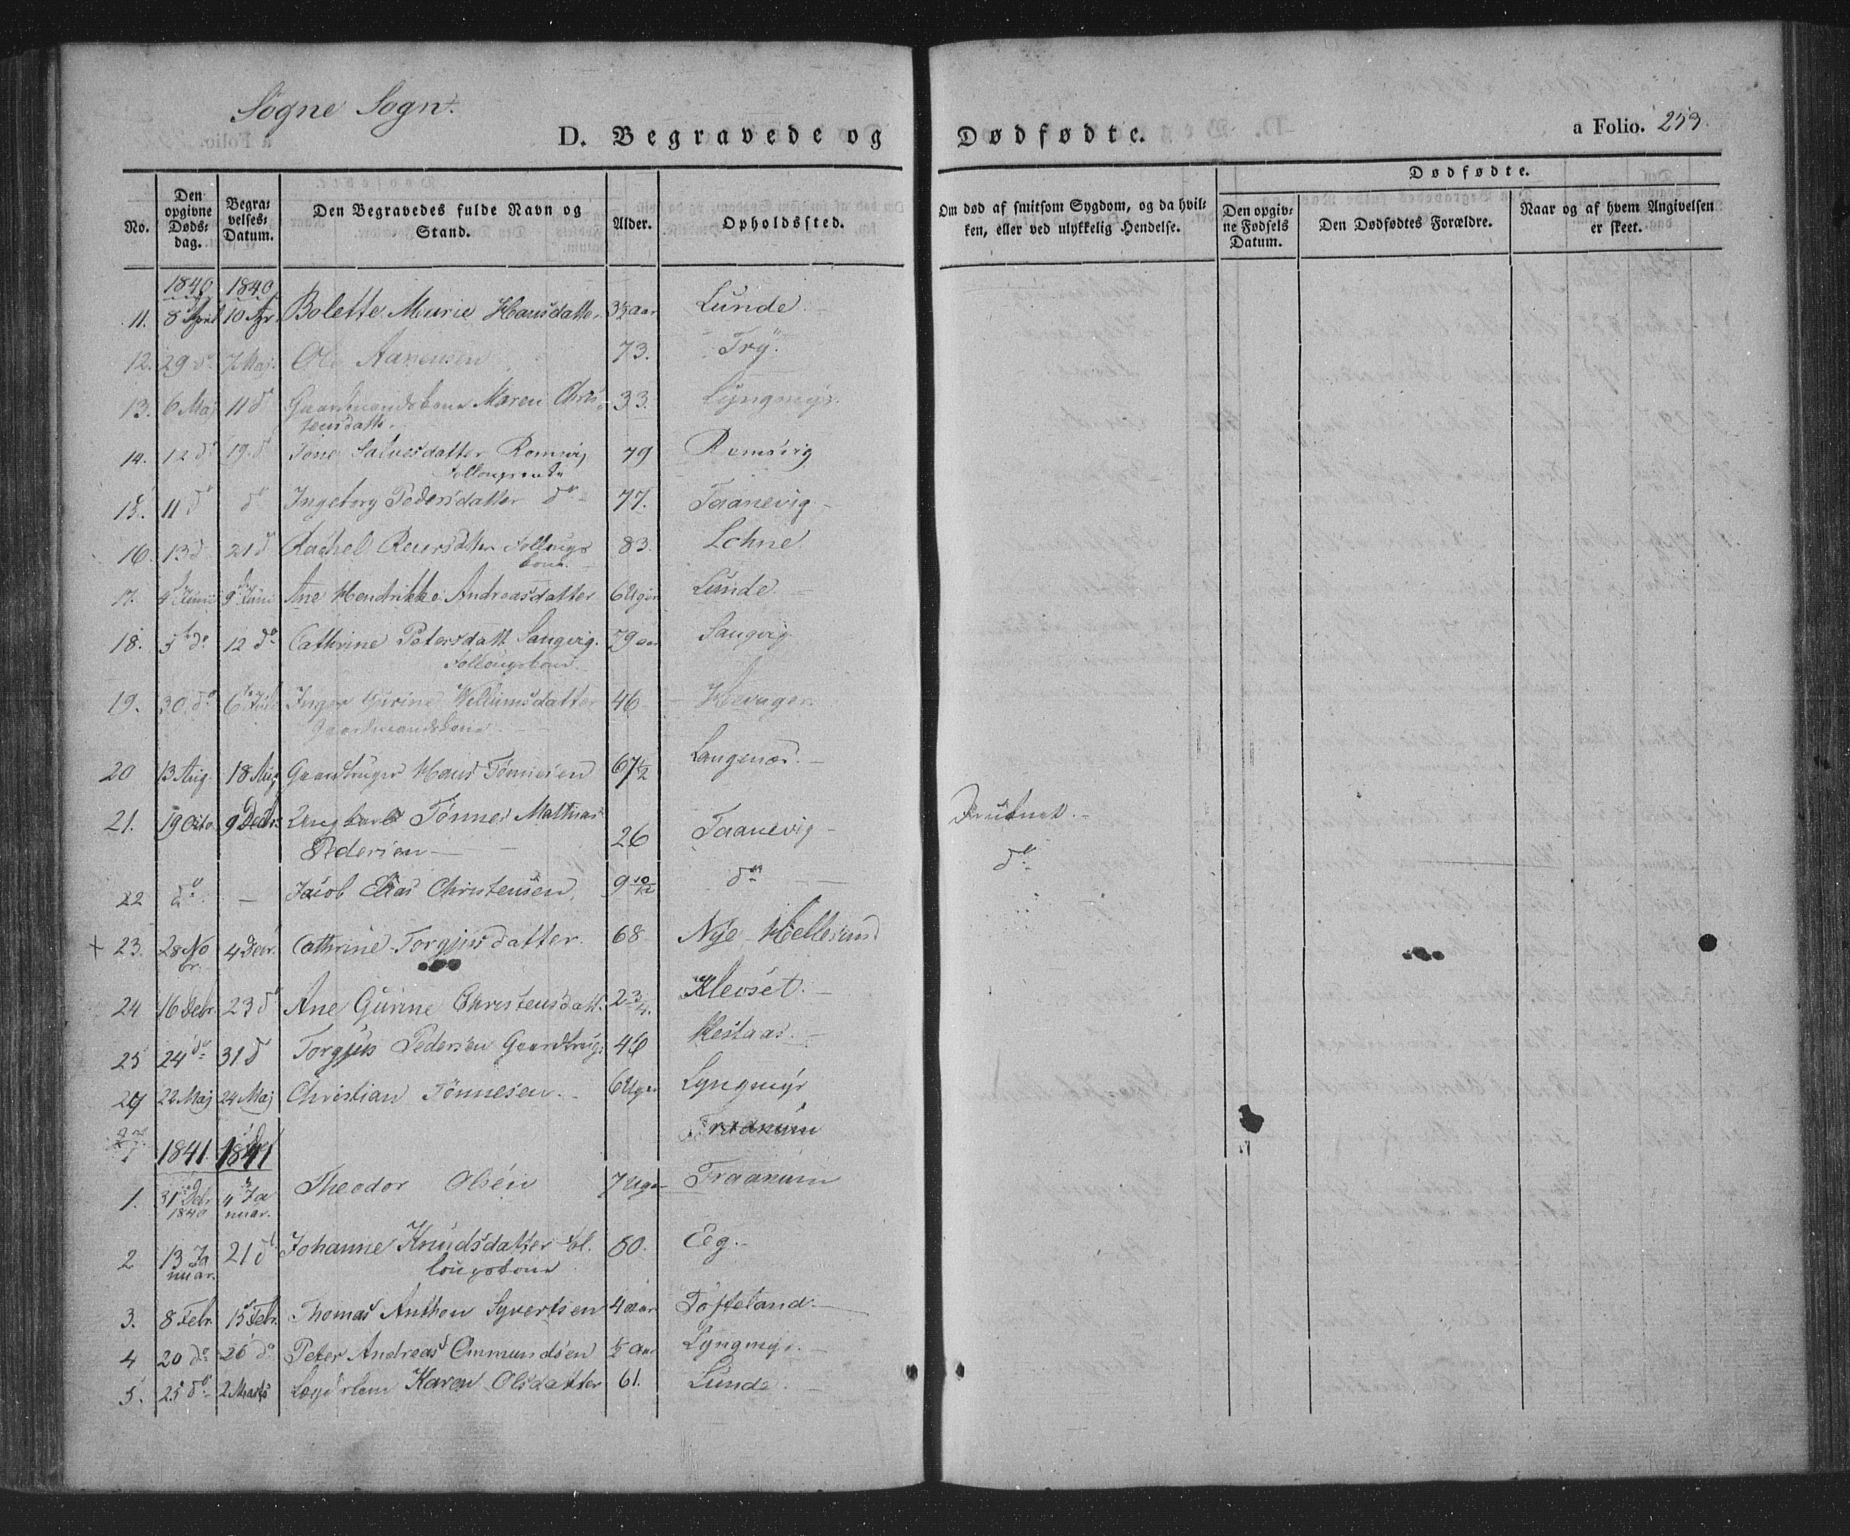 Søgne Sogn.
D. Begravede og Dødfødte.
a Folio. 253.
No.
Den opgivne Dødsdag.
Begravelses-Datum.
Den Begravedes fulde Navn og Stand.
Alder.
Opholdssted.
Om død af smitsom Sygdom, og da hvilken, eller ved ulykkelig Hendelse.
Dødfødte.
Den opgivne Fødsels Datum.
Den Dødfødtes Forældre.
Naar og af hvem Angivelsen er skeet.
1840 1840
11. 8 April 10 Apr. Bolette Marie Hansdatter 3½ aar Lunde.
12. 29 do 7 Maj. Ole Aanensen 73. Try.
13. 6 Maj 11 d Gaardmandskone Maren Chris-
tensdatt. 33. Lyngmyr.
14. 12 do 19 d Tone Salvesdatter Romsvig 79 Romsvig
15. 11 d do Ingeborg Pedersdatter do 77. Taanevig
16. 13 d. 21 d Rachel datter Follougs
kone. 83. Lohne
17. 4 Juni 9 Juni Ane Hendrikke Andreasdatter 6 Uger Lunde
18. 5 do 12 do Cathrine Petersdatt. Sangvig.
Follougskone 79 aar Sangvig
19. 30 do 6 Juli Inger Gurine Willumsdatter
Gaardmandskone 46
20 13 Aug. 18 Aug Gaardbruger Hans Tønnesen 67½ Langenæs.
21. 19 Octo. 9 Decbr. Ungkarl Tønnes Mathias
Pedersen 26 Taanevig Druknet.
22 do. — Jacob Elias Christensen 9 10/12 do do
+ 23. 28 No
br. 4 Debr. Cathrine Torgjusdatter. 68 Nye Hellesund
24 16 Debr. 23 d Ane Gurine Christensdatt. 2 3/4. Klevset.
25 24 do 31 d Torgjus Pedersen Gaardbrug. 46
22 Maj 24 Maj Christian Tønnesen. 6 Uger Lyngmyr
1841. 1841
1. 31 Debr.
1840 4 Ja
nuar. Theodor Olsen 7 Uger Traanum
2 13 Ja
nuar. 21 d Johanne Knudsdatter Fol-
lougskone 60. Eeg.
3. 8 Febr. 15 Febr. Thomas Anthon Syvertsen 4 aar Tofteland.
4 20 do 26 do Peter Andreas Ommundsen ½ aar Lyngmyr.
5. 25 do 2 Marts Lægdslem Karen Olsdatter 61. Lunde.